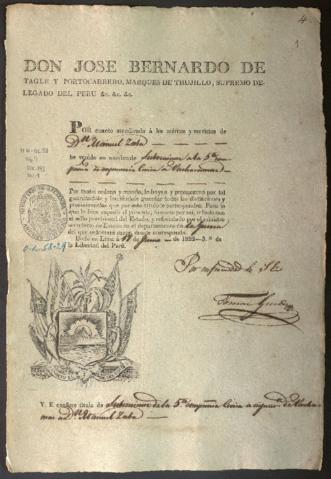 4
DON JOSE BERNARDO DE
TAGLE Y PORTOCARRERO, MARQUES DE TRUJILLO, SUPREMO DE-
LEGADO DEL PERU &c. &c. &c.
POR cuanto atendiendo á los méritos y servicios de
Dn. Manuel Zaba
he venido en nombrarle Subteniente de la 5ª com-
pañia de
Por tanto ordeno y mando, le hayan y reconozcan por tal
guardándole y haciéndole guardar todas las distinciones y
preeminencias que por este título le corresponden. Para lo
que le hice expedir el presente, firmado por mi, sellado con
el sello provisional del Estado, y refrendado por el ministro
secretario de Estado en el departamento de la Guerra
del que se tomará razon donde corresponda.
Dado en Lima á 17 de Junio de 1822—3.º de
la Libertad del Perú.
Por enfermedad de S. E.
Tomas Guido
V. E. confiere título de Subteniente de la 5ª compañia Civica
á Dn. Manuel Zaba